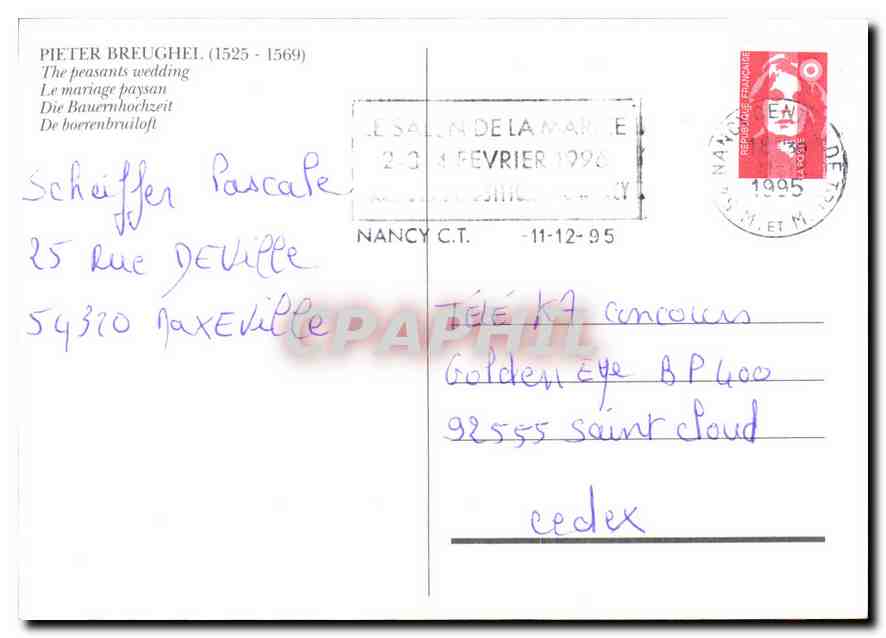 PIETER BREUGHEL (1525 - 1569)
The peasants wedding
Le mariage paysan
Die Bauernhochzeit
De boerenbruiloft
Scheiffer Pascale
25 Rue DEVille
54320 MaxEville
LE SALON DE LA MARIEE
2-3-4 FEVRIER 1996
NANCY C.T. -11-12-95
REPUBLIQUE FRANÇAISE
LA POSTE
1995
M. ET M.
TÉLÉ K7 concours
Golden Eye BP 400
92555 Saint Cloud
cedex
CPAPHIL